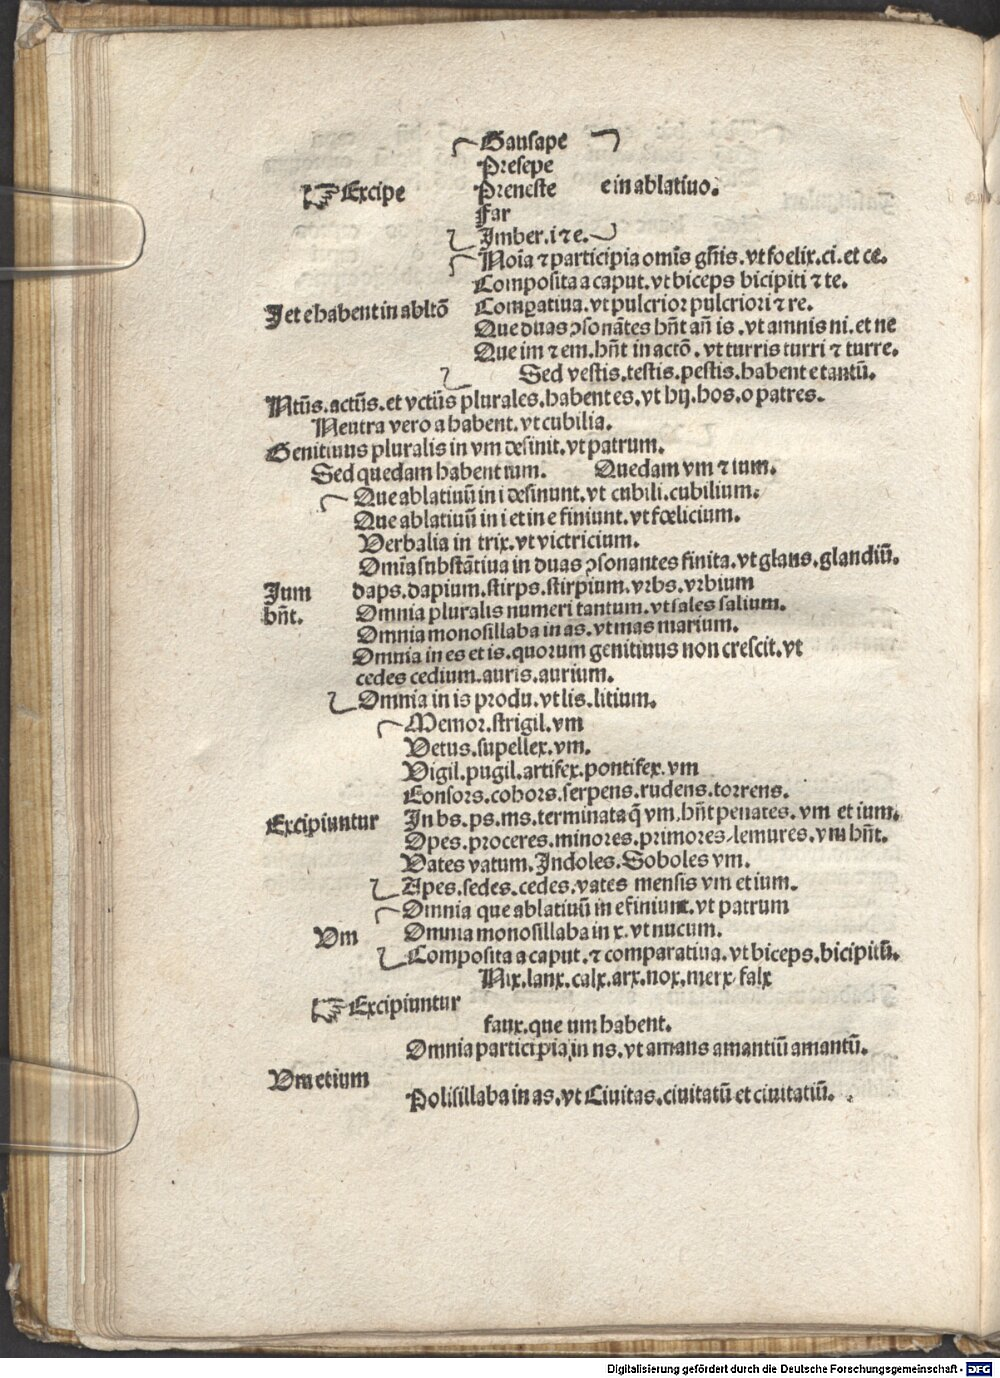 Gausape
Presepe
☞ Excipe
Preneste e in ablatiuo.
Far
Imber. i ⁊ e.
Noīa ⁊ participia omīs gn̄is. vt foelix. ci. et ce.
Composita a caput. vt biceps bicipiti ⁊ te.
I et e habent in abltō
Compatiua. vt pulcrior pulcriori ⁊ re.
Que duas ↄsonātes hn̄t an̄ is. vt amnis ni. et ne
Que im ⁊ em. hn̄t in actō. vt turris turri ⁊ turre.
Sed vestis. testis. pestis. habent e tantū.
Ntūs. actūs. et vctūs plurales. habent es. vt hij. hos. o patres.
Neutra vero a habent. vt cubilia.
Genitiuus pluralis in vm desinit. vt patrum.
Sed quedam habent ium. Quedam vm ⁊ ium.
Que ablatiuū in i desinunt. vt cubili. cubilium.
Que ablatiuū in i et in e finiunt. vt fœlicium.
Verbalia in trix. vt victricium.
Omīa substātiua in duas ↄsonantes finita. vt glans. glandiū.
Ium daps. dapium. stirps. stirpium. vrbs. vrbium
hn̄t. Omnia pluralis numeri tantum. vt sales salium.
Omnia monosillaba in as. vt mas marium.
Omnia in es et is. quorum genitiuus non crescit. vt
cedes cedium. auris. aurium.
Omnia in is produ. vt lis. litium.
Memor. strigil. vm
Vetus. supellex. vm.
Vigil. pugil. artifex. pontifex. vm
Consors. cohors. serpens. rudens. torrens.
Excipiuntur In bs. ps. ms. terminata q̄ vm. hn̄t penates. vm et ium.
Opes. proceres. minores. primores. lemures. vm hn̄t.
Vates vatum. Indoles. Soboles vm.
Apes. sedes. cedes. vates mensis vm et ium.
Omnia que ablatiuū in e finiunt. vt patrum
Vm Omnia monosillaba in x. vt nucum.
Composita a caput. ⁊ comparatiua. vt biceps. bicipitū.
Nix. lanx. calx. arx. nox. merx. falx
☞ Excipiuntur
faux. que ium habent.
Omnia participia in ns. vt amans amantiū amantū.
Vm et ium
Polisillaba in as. vt Ciuitas. ciuitatū et ciuitatiū.
Digitalisierung gefördert durch die Deutsche Forschungsgemeinschaft - DFG